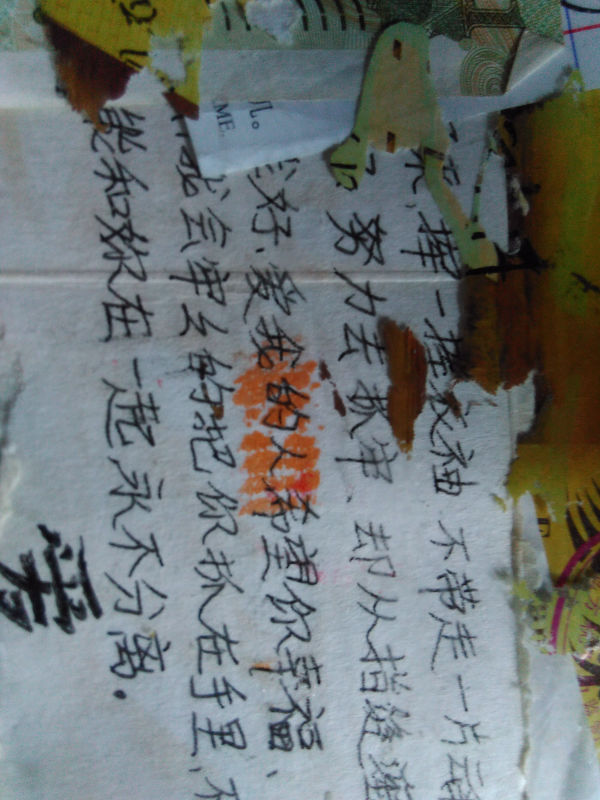 挥一挥衣袖 不带走一片
努力去抓牢、却从指缝
好、爱我的人希望你幸福、
我会牢々的把你抓在手里,不
能和你在一起永不分离。
儿。
ME.